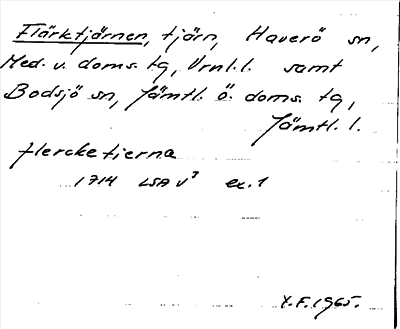 Flärktjärnen, tjärn, Haverö sn,
Med. v. doms. tg, Vrnl. l. samt
Bodsjö sn, Jämtl. ö. doms. tg,
Jämtl. l.
flercketierna
1714 LSA V³ ex. 1
Y.F. 1965.